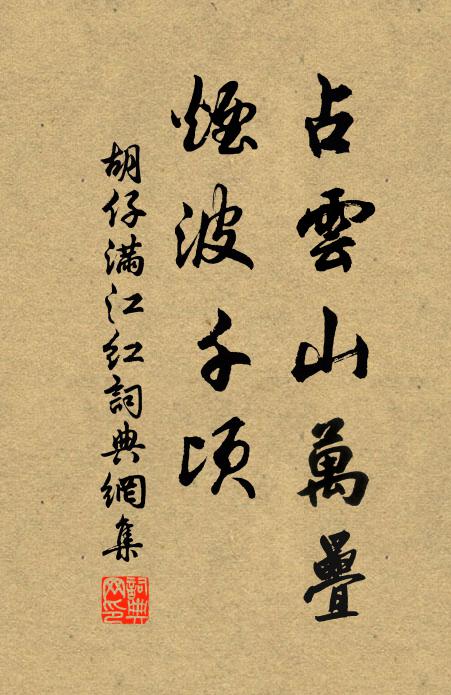 占雲山萬疊
煙波千頃
胡仔满江红詞典網集
詞典网印